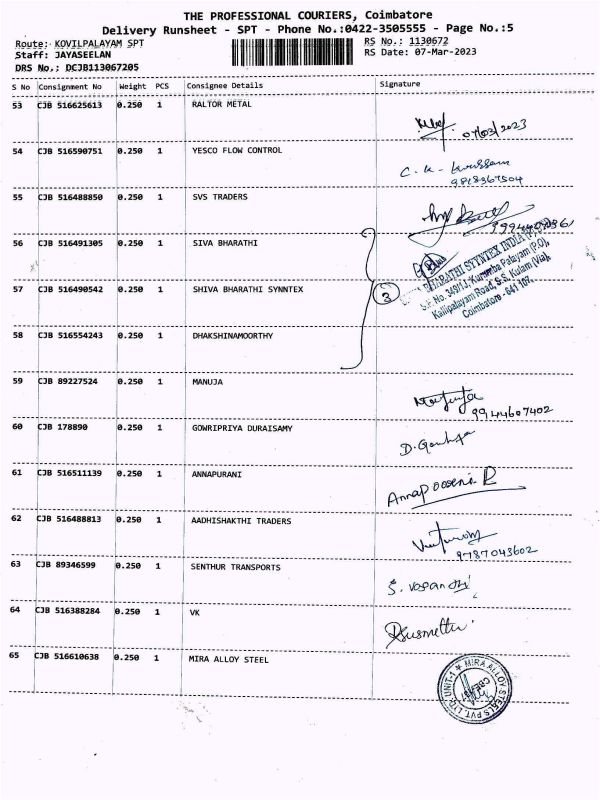 THE PROFESSIONAL COURIERS, Coimbatore
Delivery Runsheet - SPT - Phone No.:0422-3505555 - Page No.:5
Route: KOVILPALAYAM SPT RS No.: 1130672
Staff: JAYASEELAN RS Date: 07-Mar-2023
DRS No.: DCJB113067205
S No Consignment No Weight PCS Consignee Details Signature
53 CJB 516625613 0.250 1 RALTOR METAL
07/03/2023
54 CJB 516590751 0.250 1 YESCO FLOW CONTROL
C. K.
9818967504
55 CJB 516488850 0.250 1 SVS TRADERS
56 CJB 516491305 0.250 1 SIVA BHARATHI
BHARATHI SYNTEX INDIA (P) LTD
57 CJB 516490542 0.250 1 SHIVA BHARATHI SYNNTEX 3
S.F. No. 349/1J, Kurumba Palayam (P.O),
Kalipalayam Road, S.S. Kulam (Via),
Coimbatore - 641 107.
58 CJB 516554243 0.250 1 DHAKSHINAMOORTHY
59 CJB 89227524 0.250 1 MANUJA
9944607402
60 CJB 178890 0.250 1 GOWRIPRIYA DURAISAMY
61 CJB 516511139 0.250 1 ANNAPURANI
Annapooseni. R
62 CJB 516488813 0.250 1 AADHISHAKTHI TRADERS
9787043602
63 CJB 89346599 0.250 1 SENTHUR TRANSPORTS
64 CJB 516388284 0.250 1 VK
65 CJB 516610638 0.250 1 MIRA ALLOY STEEL
MIRA ALLOY STEELS PVT. LTD. UNIT-1